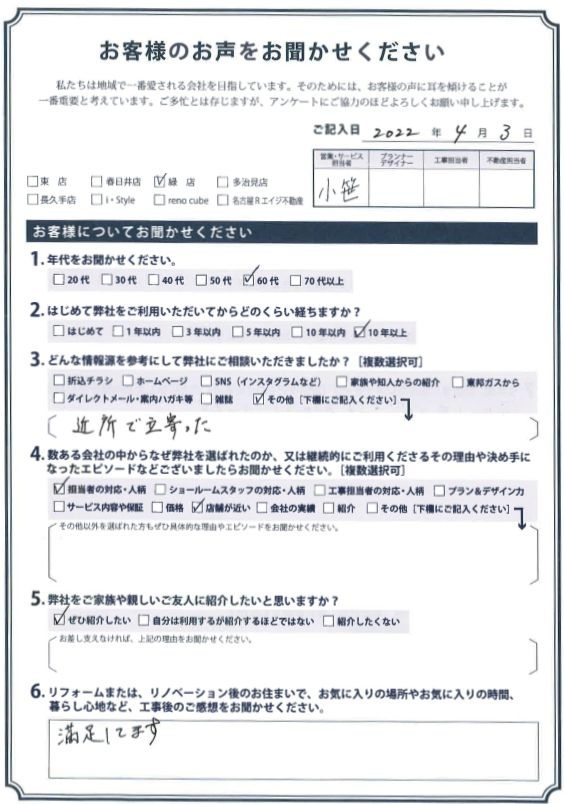 お客様のお声をお聞かせください
私たちは地域で一番愛される会社を目指しています。そのためには、お客様の声に耳を傾けることが
一番重要と考えています。ご多忙とは存じますが、アンケートにご協力のほどよろしくお願い申し上げます。
ご記入日 2022 年 4 月 3 日
営業・サービス担当者 プランナーデザイナー 工事担当者 不動産担当者
小笹
□東 店 □春日井店 ☑緑 店 □多治見店
□長久手店 □i・Style □reno cube □名古屋Rエイジ不動産
お客様についてお聞かせください
1. 年代をお聞かせください。
□20代 □30代 □40代 □50代 ☑60代 □70代以上
2. はじめて弊社をご利用いただいてからどのくらい経ちますか？
□はじめて □1年以内 □3年以内 □5年以内 □10年以内 ☑10年以上
3. どんな情報源を参考にして弊社にご相談いただきましたか？［複数選択可］
□折込チラシ □ホームページ □SNS（インスタグラムなど） □家族や知人からの紹介 □東邦ガスから
□ダイレクトメール・案内ハガキ等 □雑誌 ☑その他［下欄にご記入ください］
近所で立寄った
4. 数ある会社の中からなぜ弊社を選ばれたのか、又は継続的にご利用くださるその理由や決め手に
なったエピソードなどございましたらお聞かせください。［複数選択可］
☑担当者の対応・人柄 □ショールームスタッフの対応・人柄 □工事担当者の対応・人柄 □プラン＆デザイン力
□サービス内容や保証 □価格 ☑店舗が近い □会社の実績 □紹介 □その他［下欄にご記入ください］
その他以外を選ばれた方もぜひ具体的な理由やエピソードをお聞かせください。
5. 弊社をご家族や親しいご友人に紹介したいと思いますか？
☑ぜひ紹介したい □自分は利用するが紹介するほどではない □紹介したくない
お差し支えなければ、上記の理由をお聞かせください。
6. リフォームまたは、リノベーション後のお住まいで、お気に入りの場所やお気に入りの時間、
暮らし心地など、工事後のご感想をお聞かせください。
満足してます